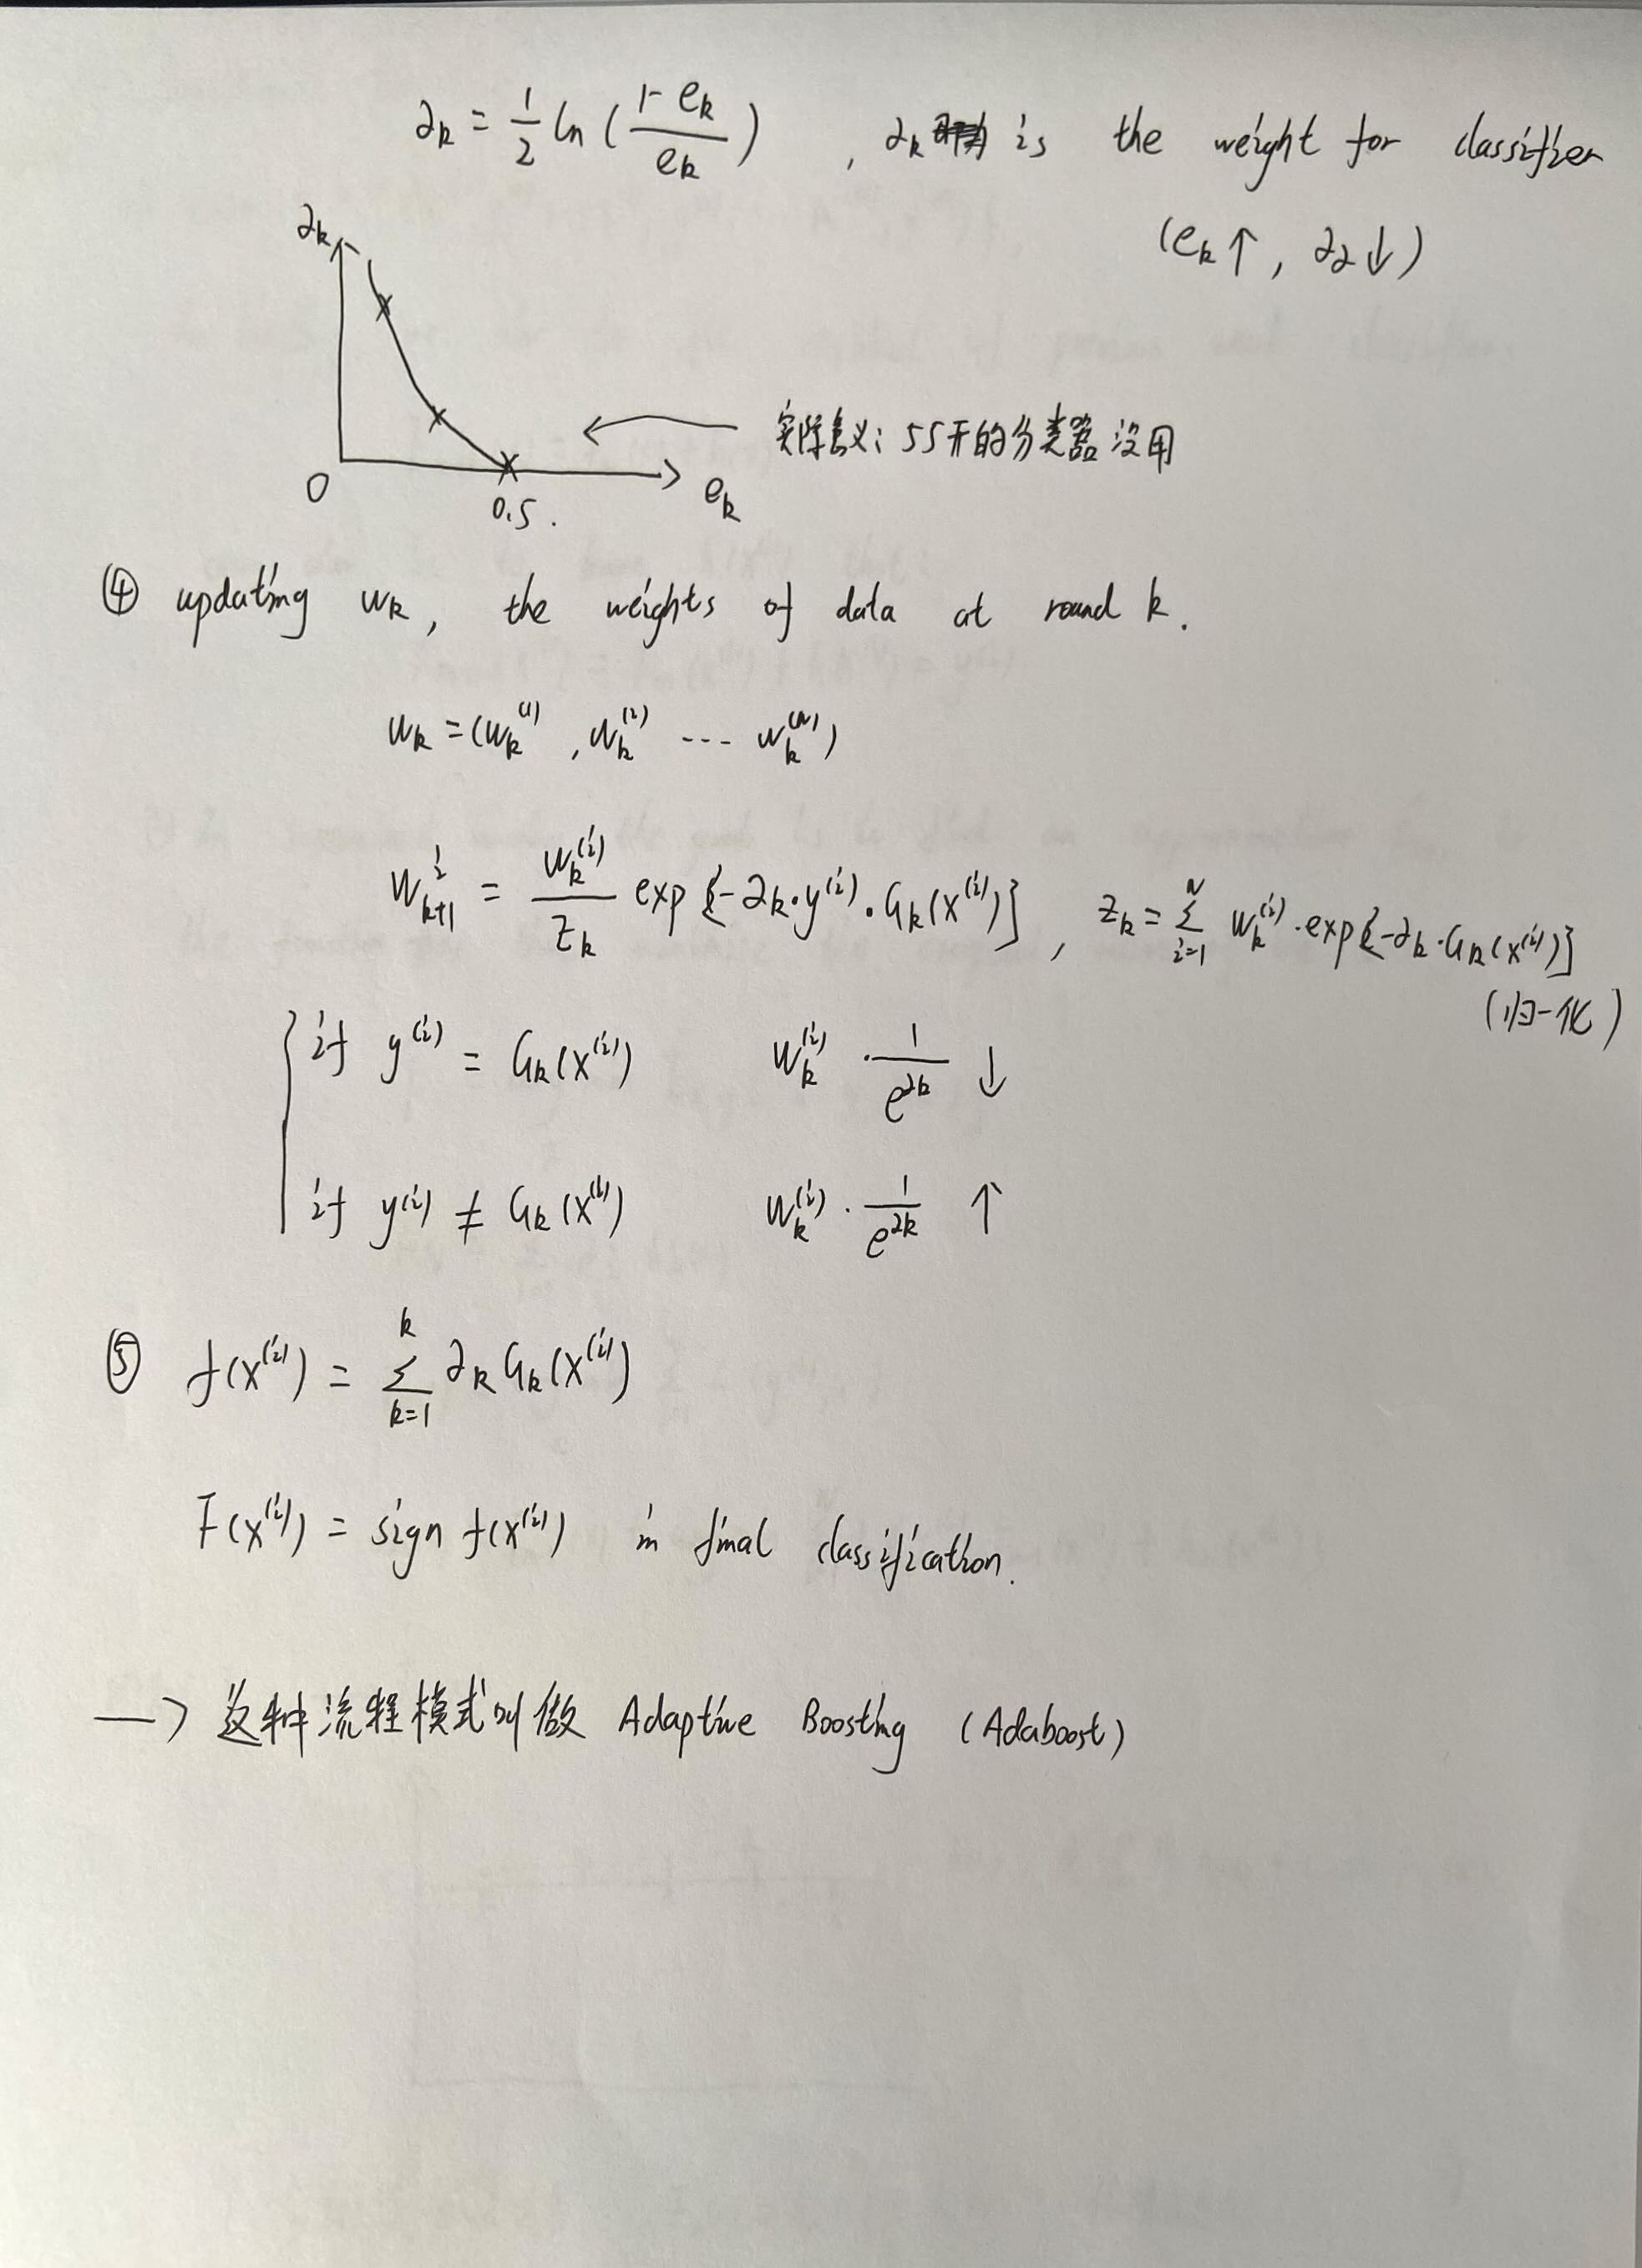 ∂k = 1/2 ln ( (1 - ek) / ek ) , ∂k is the weight for classifier
(ek ↑ , ∂∂ ↓)
∂k
实际意义: 55开的分类器没用
0 0.5. ek
④ updating wk, the weights of data at round k.
wk = (wk^(1), wk^(2) --- wk^(N))
w_{k+1}^i = wk^(i) / Zk exp{-∂k·y^(i)·Gk(x^(i))} , Zk = Σ_{i=1}^{N} wk^(i)·exp{-∂k·Gk(x^(i))}
(归一化)
if y^(i) = Gk(x^(i)) wk^(i) · 1/e^{∂k} ↓
if y^(i) ≠ Gk(x^(i)) wk^(i) · 1/e^{∂k} ↑
⑤ f(x^(i)) = Σ_{k=1}^{k} ∂k Gk(x^(i))
F(x^(i)) = sign f(x^(i)) in final classification.
—> 这种流程模式叫做 Adaptive Boosting (Adaboost)